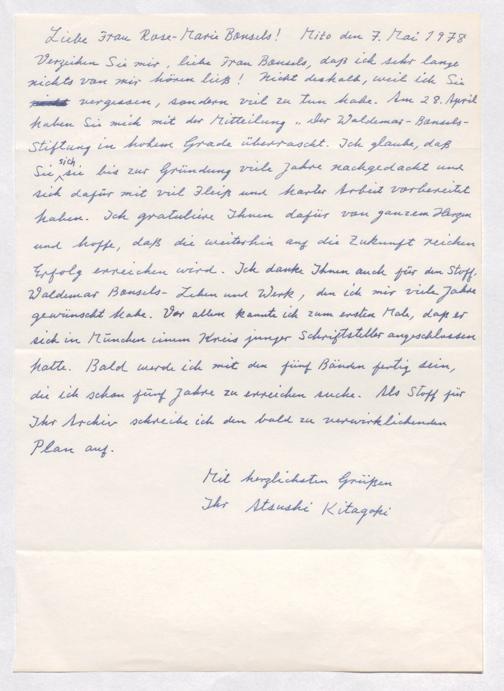 Liebe Frau Rose-Marie Bonsels! Mito den 7. Mai 1978
Verzeihen Sie mir, liebe Frau Bonsels, daß ich sehr lange
nichts von mir hören ließ! Nicht deshalb, weil ich Sie
vergessen, sondern viel zu tun habe. Am 28. April
haben Sie mich mit der Mitteilung „Der Waldemar-Bonsels-
Stiftung in hohem Grade überrascht. Ich glaube, daß
Sie sich bis zur Gründung viele Jahre nachgedacht und
sich dafür mit viel Fleiß und harter Arbeit vorbereitet
haben. Ich gratuliere Ihnen dafür von ganzem Herzen
und hoffe, daß die weiterhin auf die Zukunft reichen
Erfolg erreichen wird. Ich danke Ihnen auch für den Stoff,
Waldemar Bonsels- Leben und Werk, den ich mir viele Jahre
gewünscht habe. Vor allem kannte ich zum ersten Male, daß er
sich in München einem Kreis junger Schriftsteller angeschlossen
hatte. Bald werde ich mit den fünf Bänden fertig sein,
die ich schon fünf Jahre zu erreichen suche. Als Stoff für
Ihr Archiv schreibe ich den bald zu verwirklichenden
Plan auf.
Mit herzlichsten Grüßen
Ihr Atsushi